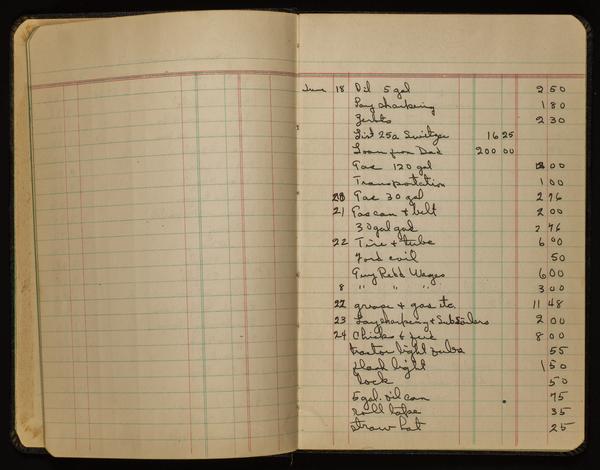 June 18 Oil 5 gal 2 50
Lay sharping 1 80
Zerks 2 30
List 25a Switzer 16 25
Loan from Dad 200 00
Gas 120 gal 00
Transportation 1 00
20 Gas 30 gal 2 76
21 Gas can & belt 2 00
30 gal gas 2 76
22 Tire & tube 6 00
Ford coil 50
Guy Redd Wages 6 00
8 " " " 3 00
22 grease & gas etc. 11 48
23 Laysharping & Subsoilers 2 00
24 Chicks & feed 8 00
tractor light bulbs 55
flash light 1 50
Lock 50
5 gal. oil can 75
roll tape 35
straw hat 25